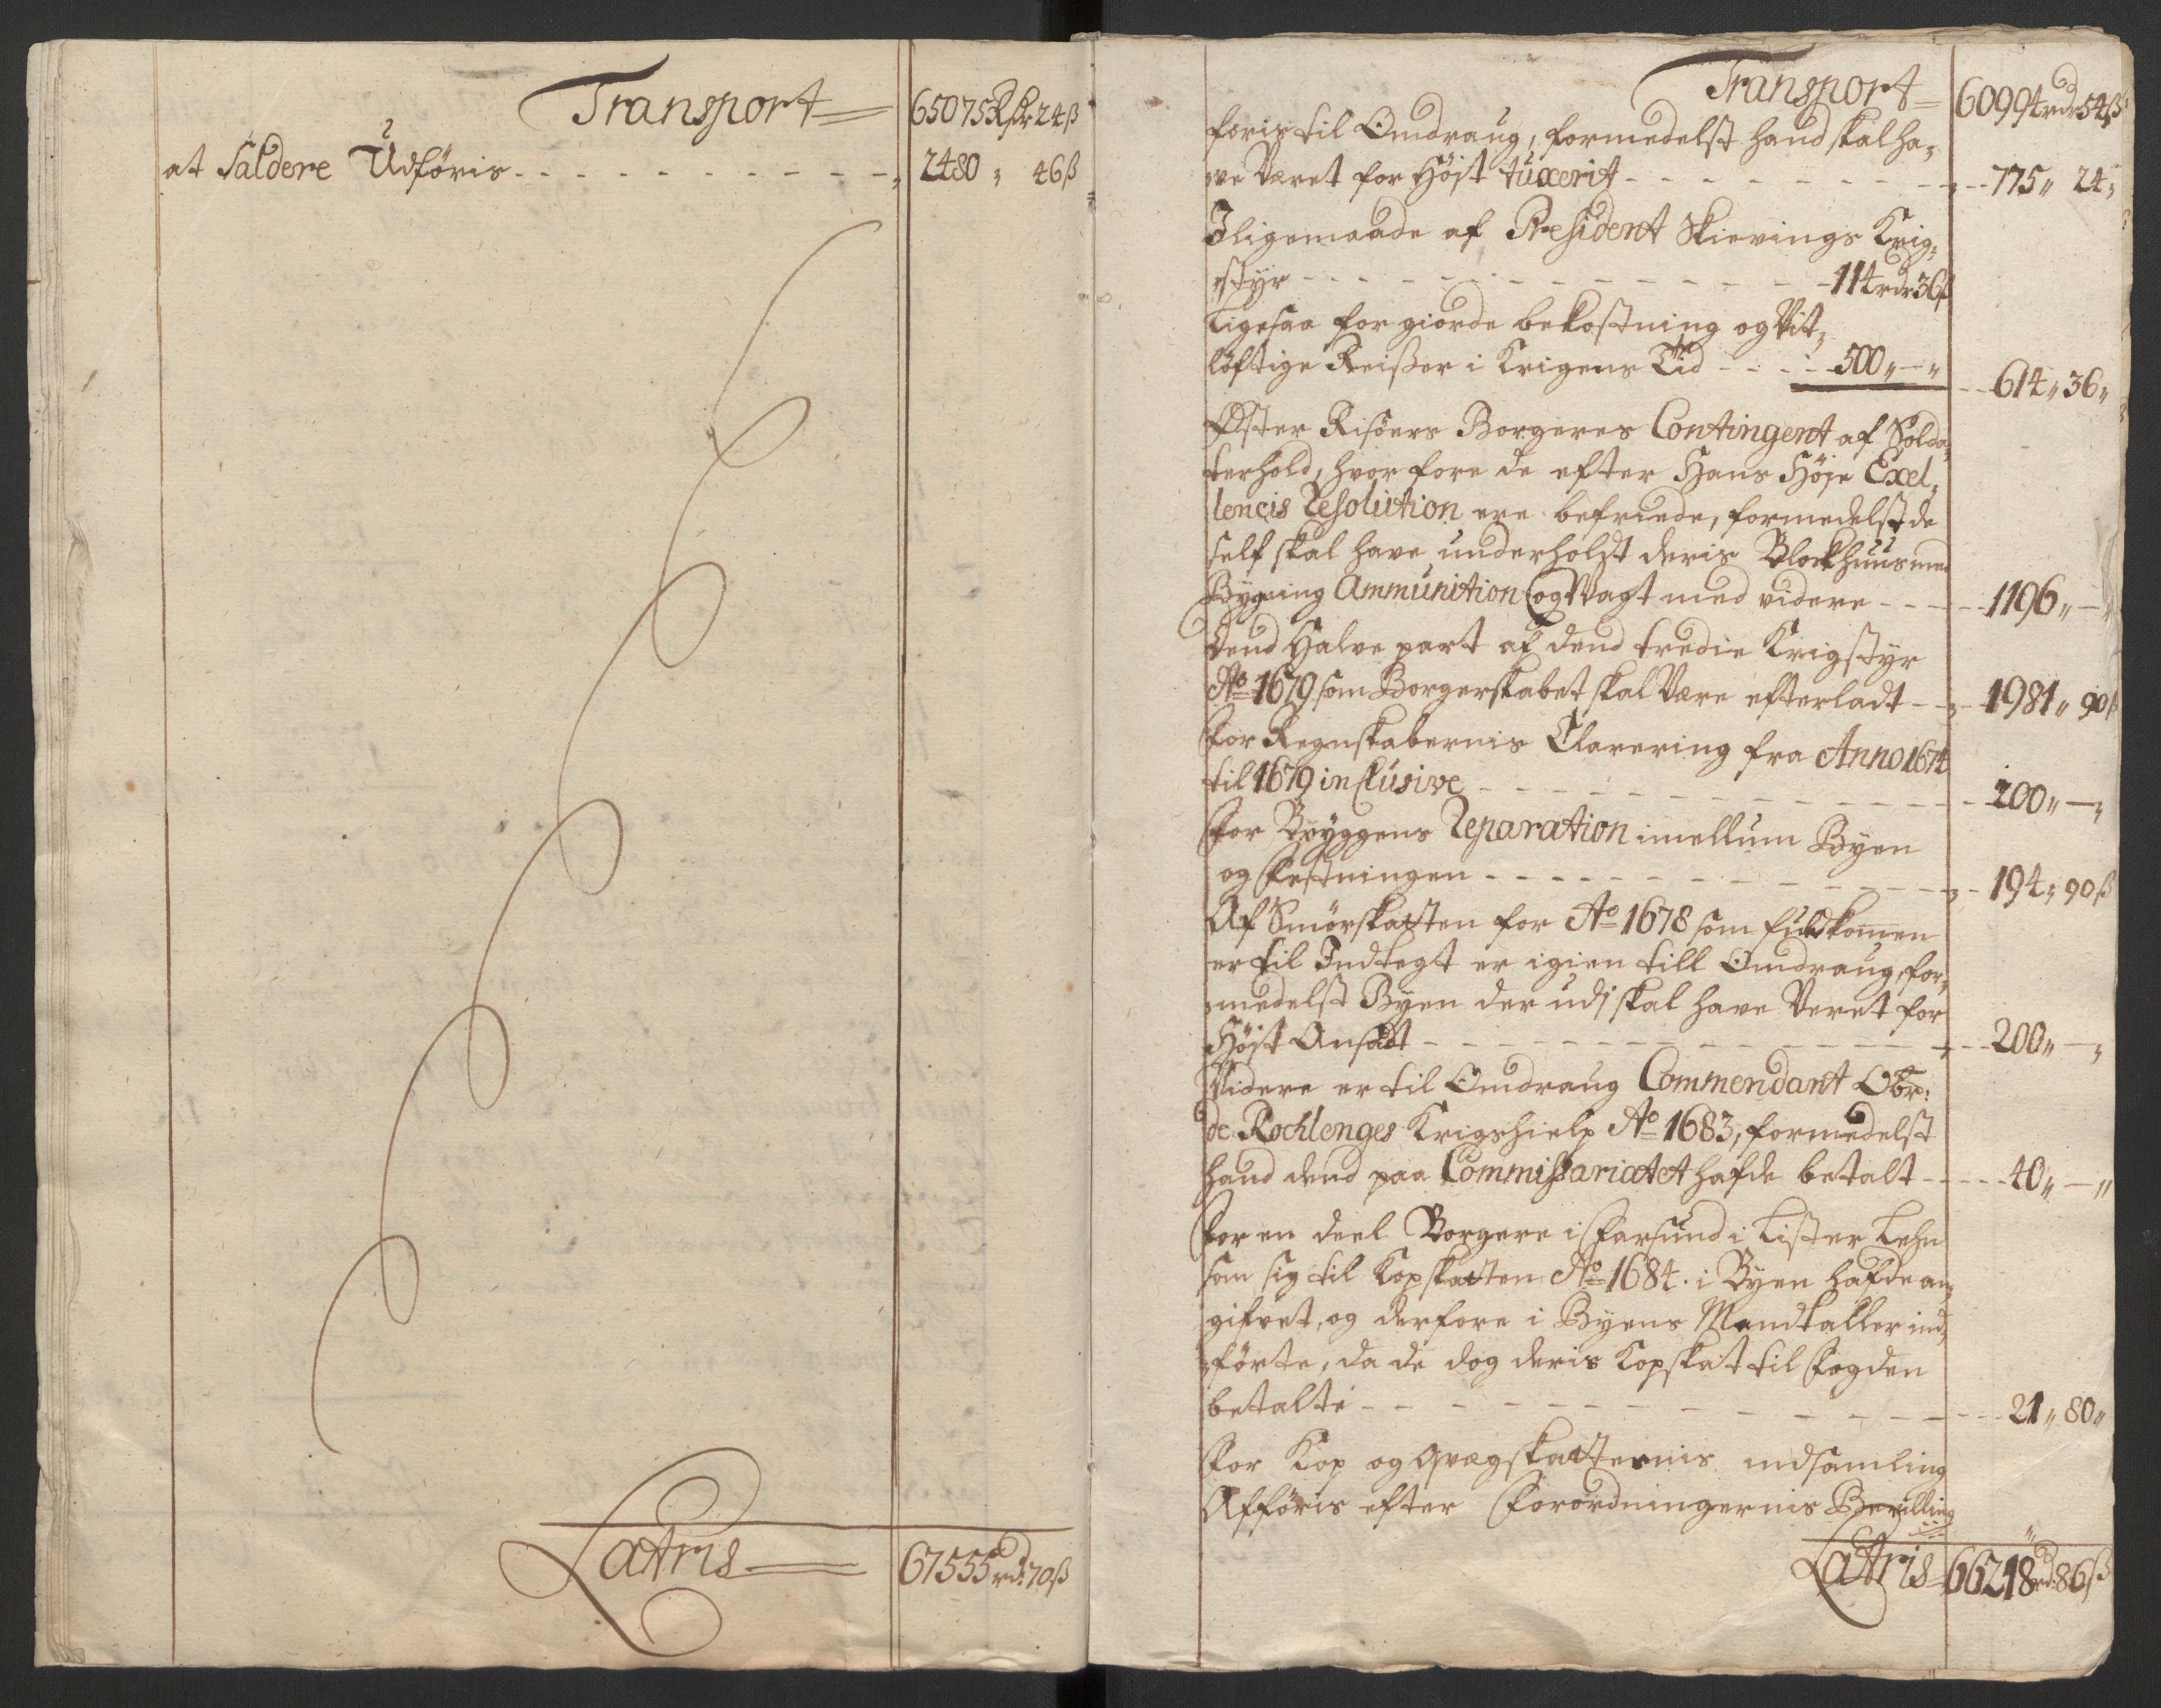 Transport 65075 Rdr 24ß
at Saldere Udføris 2480 „ 46ß
Latris 67555 rd: 70ß
Transport 60994 rdr 54ß
foris til Omdraug, formedelst hand skal ha„
ve Været for Høyt tuxerit 775„ 24„
Iligemaade af President Skievings Krig„
styr 114 rdr 36ß
Ligesaa for giorde bekostning og Vit„
løftige Reißer i Krigens Tid 500„ — „ 614„ 36„
Øster Risöers Borgeres Contingent af Solda„
terhold, hvor fore de efter Hans Høje Exel„
lencis Resolution ere befriede, formedelst de
self skal have underholdt deris Blockhuus med
Bygning Ammunition og Wagt med videre 1196„ — „
Dend Halve part af dend tredie Krigstyr
Ao 1679 som Borgerskabet skal Være efterladt 1981„ 90ß
For Regnskabernis Clarering fra Anno 1674
til 1679 inclusive 200„ — „
For Bryggens Reparation imellum Byen
og Festningen 194„ 90ß
Af Smørskatten for Ao 1678 som fuldkomen
er til Indtegt er igien till Omdraug, for„
medelst Byen der udj skal have Veret for
Høyt Ansadt 200„ — „
Videre er til Omdraug Commendant Obr:
de Rochlenges Krigshielp Ao 1683, formedelst
hand dend paa Commissariatet hafde betalt 40„ — „
For en deel Borgere i Farsund i Lister Lehn
som sig til Kopskatten Ao 1684. i Byen hafde an„
gifvet, og derfore i Byens Mandtaller ind„
førte, da de dog deris Kopskat til Fogden
betalte 21„ 80„
For Kop og Qvægskatternis indsamling
Afføris efter Forordningernis Bevilling
Latris 66218 rd: 86ß